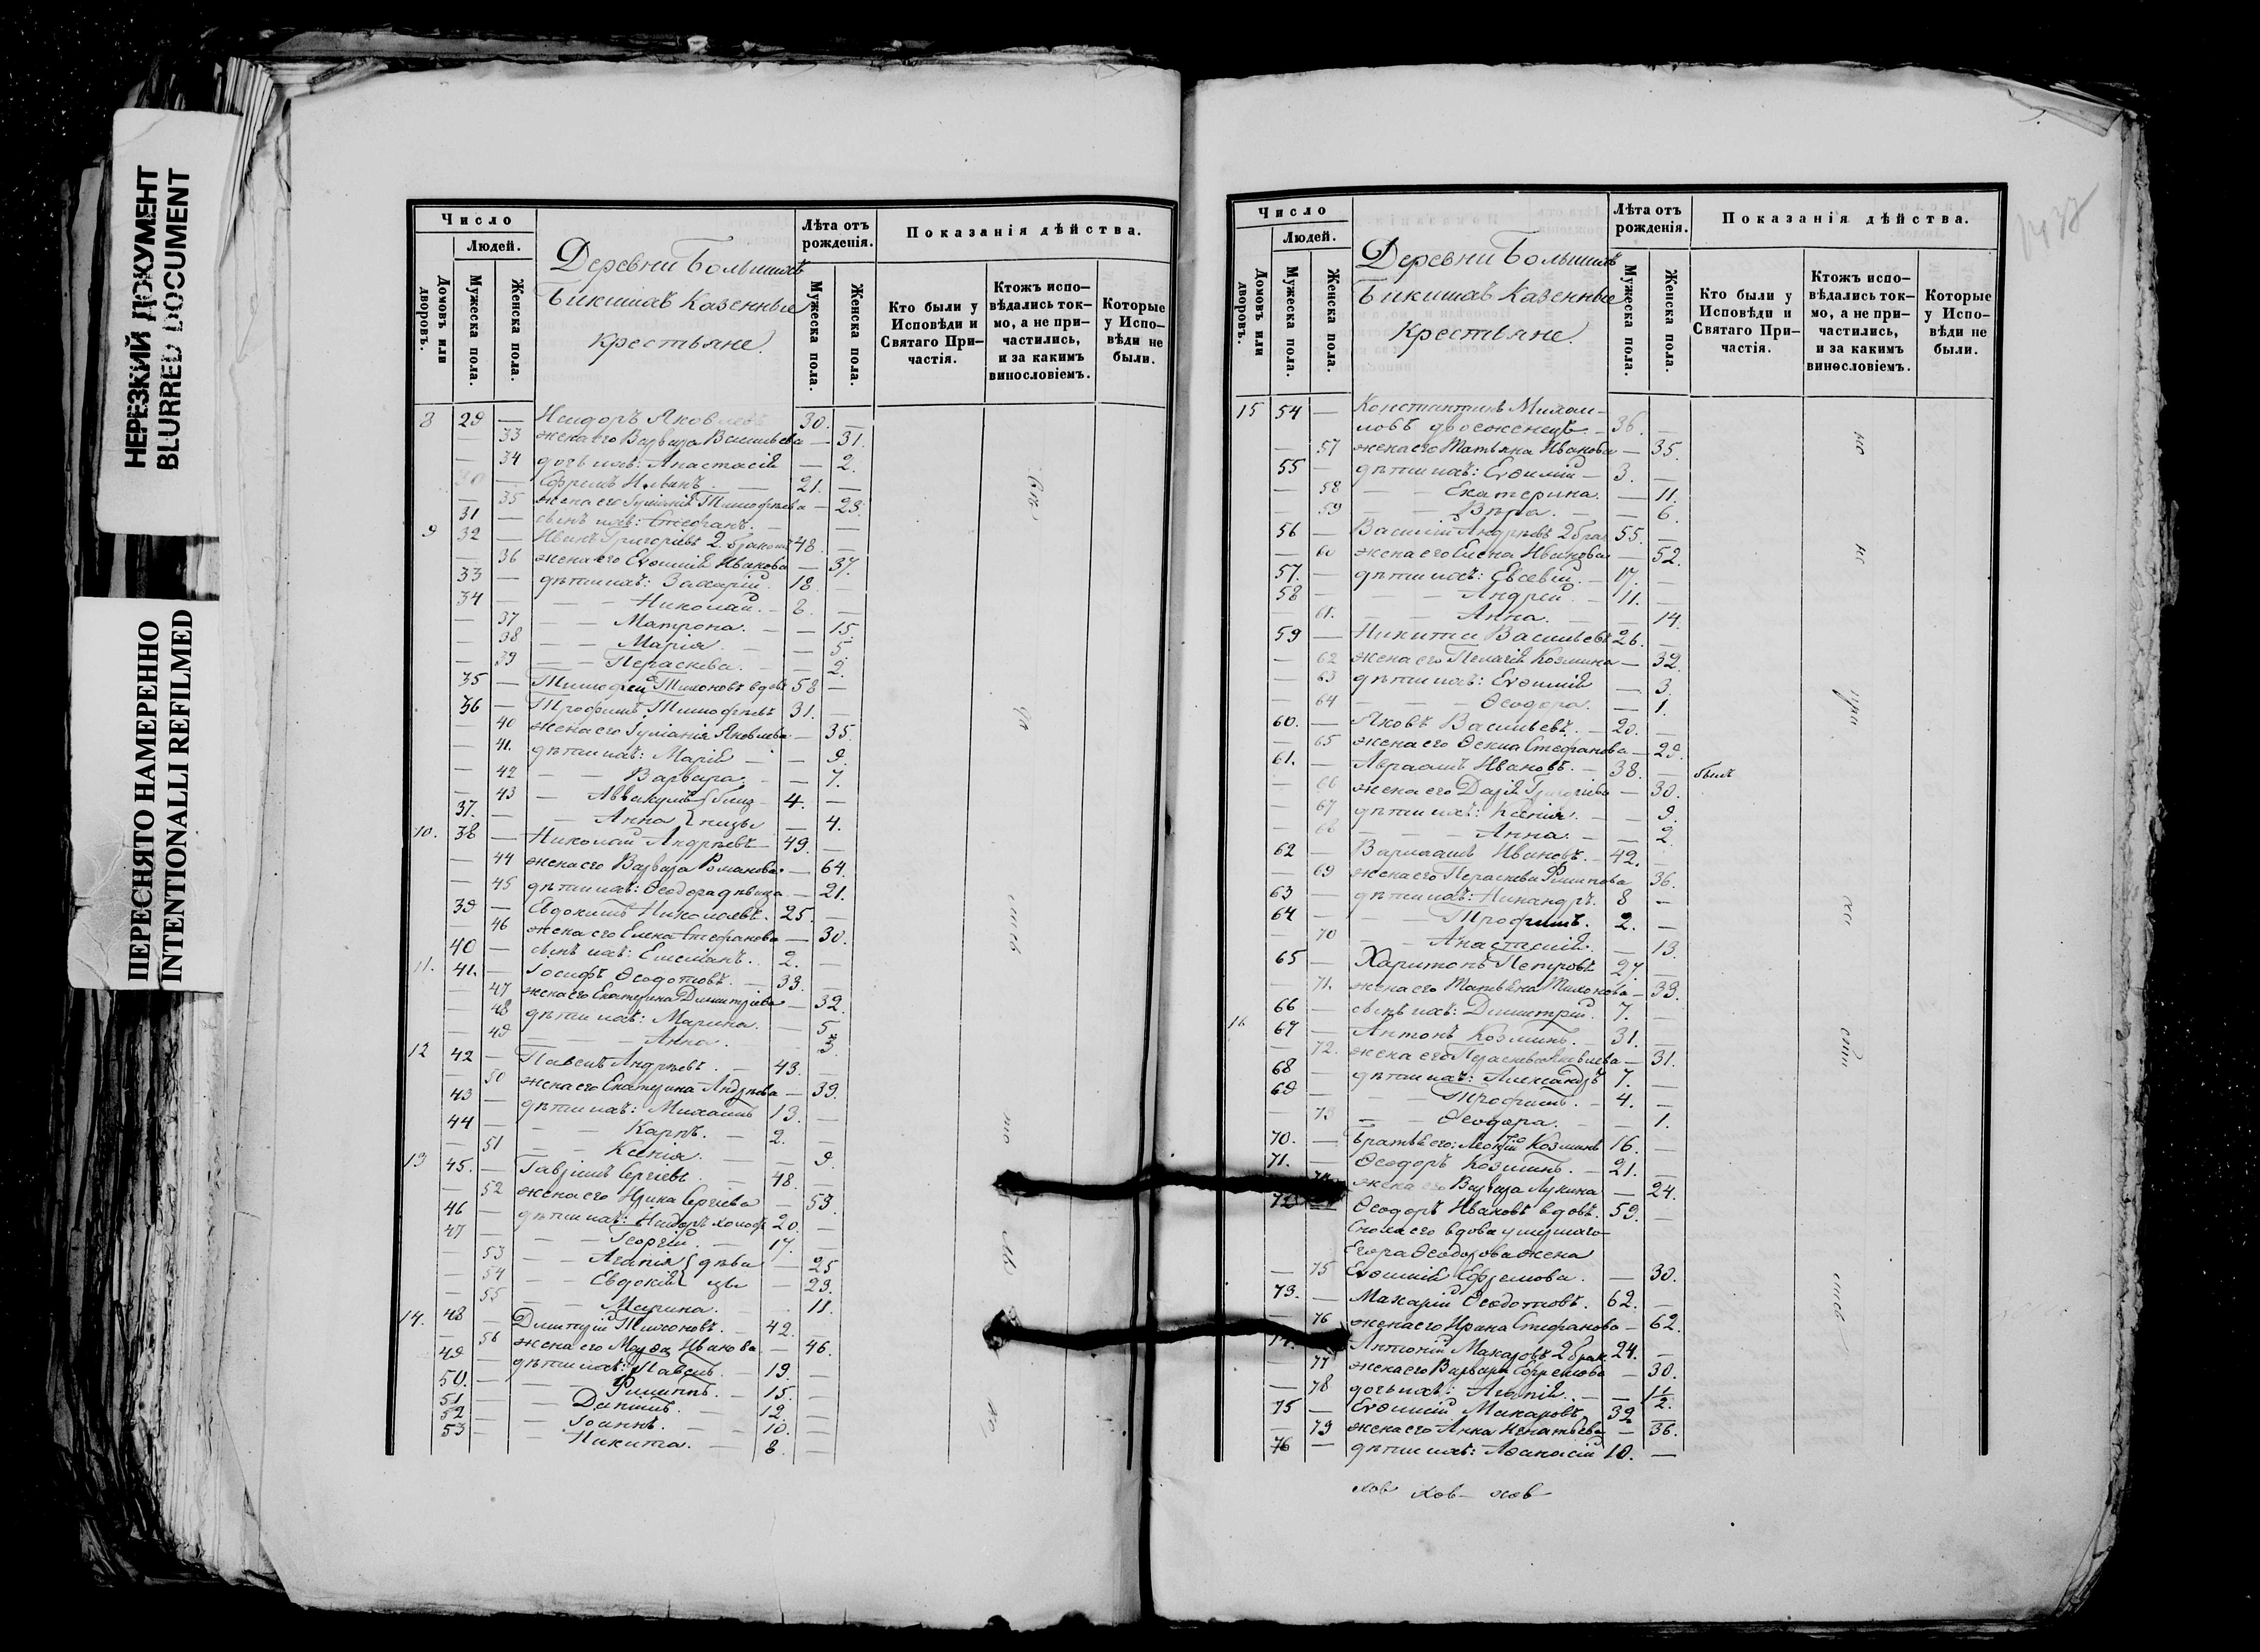 НЕРЕЗКИЙ ДОКУМЕНТ
BLURRED DOCUMENT
ПЕРЕСНЯТО НАМЕРЕННО
INTENTIONALLI REFILMED
Число
Людей.
Домовъ или дворовъ.
Мужеска пола.
Женска пола.
Деревни Большихъ
Бикшихъ Казенные
Крестьяне.
Лѣта отъ рожденія.
Мужеска пола.
Женска пола.
Показанія дѣйства.
Кто были у Исповѣди и Святаго При-частія.
Ктожъ испо-вѣдались ток-мо, а не при-частились, и за какимъ винословіемъ.
Которые у Испо-вѣди не были.
8 29 — Исидоръ Яковлевъ 30. —
— 33 жена его Варвара Васильева — 31.
— 34 дочь ихъ: Анастасія — 2.
30 — Ефремъ 21. —
— 35 жена его Іуліанія Тимофѣева — 23.
31 — сынъ ихъ: Стефанъ. — —
9 32 — Иванъ Григорьевъ 2. бракомъ 48. —
— 36 жена его Евѳимія Иванова — 37.
33 — дѣти ихъ: Захарій 18. —
34 — — — Николай. — 8. —
— 37 — — Матрона. — — 15.
— 38 — — Марія — — 5.
— 39 — — Пераскева. — — 2.
35 — Тимофей Тихоновъ вдовъ 58 —
36 — Трофимъ Тимофѣевъ 31. —
— 40 жена его Іуліанія Яковлева — 35.
— 41. дѣти ихъ: Марія — — 9.
— 42 — — Варвара — — 7.
— 43 — Аввакумъ { близ- 4. —
37. — — Анна { нецы — 4.
10. 38 — Николай Андрѣевъ — 49. —
— 44 жена его Варвара Романова — 64.
— 45 дѣти ихъ: Ѳеодора дѣвица — 21.
39 — Евдокимъ Николаевъ. 25. —
— 46 жена его Елена Стефанова — 30.
40 — сынъ ихъ: 2. —
11. 41. — Іосифъ Ѳеодотовъ. — 33. —
— 47 жена его Екатерина Димитріева — 32.
— 48 дѣти ихъ: Марина. — 5
— 49 — — — Анна. 3.
12 42 — Павелъ Андрѣевъ. — 43. —
— 50 жена его Екатерина Андрѣева — 39.
43 — дѣти ихъ: Михаилъ 13. —
44 — — — Карпъ. — 2. —
— 51 — — Ксенія. — — 9.
13 45. — Гавріилъ Сергіевъ 48. —
— 52 жена его Ирина Сергіева — 53.
46 — дѣти ихъ: Исидоръ холост. 20. —
47 — — — Георгій. — 17. —
— 53 — — Агапія { дѣви — 25
— 54 — — Евдокія { цы — 23.
— 55 — — Марина. — 11.
14. 48 — Димитрій Тихоновъ. — 42.
— 56 жена его Марѳа Иванова — 46.
49 — дѣти ихъ: Павелъ. — 19. —
50. — — — Филиппъ. — 15. —
51 — — — Даніилъ. — 12. —
52 — — — Іоаннъ. — 10. —
53 — — — Никита. — 8. —
Число
Людей.
Домовъ или дворовъ.
Мужеска пола.
Женска пола.
Деревни Большихъ
Бикшихъ Казенные
Крестьяне.
Лѣта отъ рожденія.
Мужеска пола.
Женска пола.
Показанія дѣйства.
Кто были у Исповѣди и Святаго При-частія.
Ктожъ испо-вѣдались ток-мо, а не при-частились, и за какимъ винословіемъ.
Которые у Испо-вѣди не были.
15 54 — Константинъ Михаи-
ловъ двоеженецъ — 36. —
— 57 жена его Татьяна Иванова — 35.
55 — дѣти ихъ: Евѳимій — 3. —
— 58 — — Екатерина. — 11.
— 59 — — Вѣра. — — 6.
56 — Василій Андрѣевъ 2 бра 55. —
— 60 жена его Елена Иванова — 52.
57. — дѣти ихъ: Евсевій. — 17. —
58 — — — Андрей — 11. —
— 61. — — Анна. — — 14.
59 — Никита Васильевъ 26. —
— 62 жена его Пелагія Козмина — 32.
— 63 дѣти ихъ: Евѳимія — 3.
— 64 — — — Ѳеодора. — 1.
60. — Яковъ Васильевъ. — 20. —
— 65 жена его Ѳекла Стефанова — 29.
61. — Авраамъ Ивановъ. — 38. — былъ
— 66 жена его Дарія Григоріева — 30.
— 67 дѣти ихъ: Ксенія. — — 9.
— 68 — — — Анна. — — 2.
62 — Варлаамъ Ивановъ. — 42. —
— 69 жена его Пераскева Филипова 36.
63 — дѣти ихъ: Никандръ. 8 —
64 — — — Трофимъ. 2. —
— 70 — — Анастасія. — 13.
65 — Харитонъ Петровъ 27. —
— 71. жена его Татьяна Тихонова — 33.
66 — сынъ ихъ: Димитрій. 7. —
16 67 — Антонъ Козминъ. — 31. —
— 72. жена его Пераскева Яковлева — 31.
68 — дѣти ихъ: Александръ 7. —
69 — — — Трофимъ. — 4. —
— 73 — — Ѳеодора. — 1.
70. — братья его: Леонтій Козминъ 16. —
71. — Ѳеодоръ Козминъ. — 21. —
— 74 жена его Варвара Лукина — 24.
72 — Ѳеодоръ Ивановъ вдовъ. 59. —
Сноха его вдова умершаго
Егора Ѳеодорова жена
— 75 Евѳимія Ефремова. — 30.
73. — Макарій Ѳеодотовъ. 62. —
— 76 жена его Ирина Стефанова — 62.
74. — Антоній Макаровъ 2 брак. 24. —
— 77 жена его Варвара Ефремова — 30.
— 78 дочь ихъ: Агапія. — — 1 1/2.
75 — Евѳимій Макаровъ. 32 —
— 79 жена его Анна Игнатьева — 36.
76 — дѣти ихъ: Аѳанасій 10. —